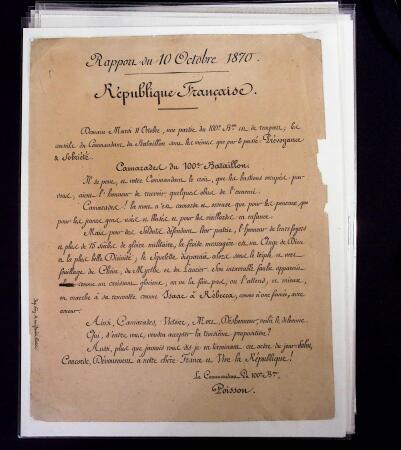 Rapport du 10 Octobre 1870.
République Française.
Demain Mardi 11 Octobre, une partie du 100e Bon est de rempart, les
consoles du Commandant du Bataillon sont les mêmes que par le passé: Prévoyance
& Sobriété.
Camarades du 100e Bataillon.
Il se peut, et votre Commandant le croit, que les bastions occupés par
vous, aient l'honneur de recevoir quelques obus de l'ennemi.
Camarades! la mort n'est camarde et osseuse que pour les peureux, que
pour les jeunes gens et pour les vieillards en enfance.
Mais pour des Soldats défendant leur patrie, l'honneur de leurs foyers
et plus de 15 siècles de gloire militaire, la froide messagère est un Ange de Dieu
et la plus belle Divinité, le Squelette disparait alors sous le triple et vert
feuillage du Chêne, du Myrthe et du Laurier. Son inexorable faulx apparaît
comme un croissant glorieux, on ne la fuit pas, on l'attend, et mieux,
on marche à sa rencontre comme Isaac à Rébecca, comme à une fiancée, avec
amour.
Ainsi, Camarades, Victoire, Mort, Déshonneur, voilà le dilemme
Qui, d'entre nous, voudra accepter la troisième proposition?
Aussi, plus que jamais vous dis-je en terminant cet ordre du jour: Calme,
Concorde, Dévouement à notre chère France et Vive la République!
Le Commandant du 100e Bon
Poisson.